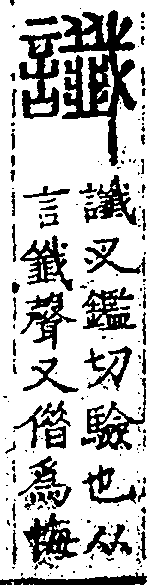 讖
讖叉鑑切驗也从
言韱聲又僭爲悔